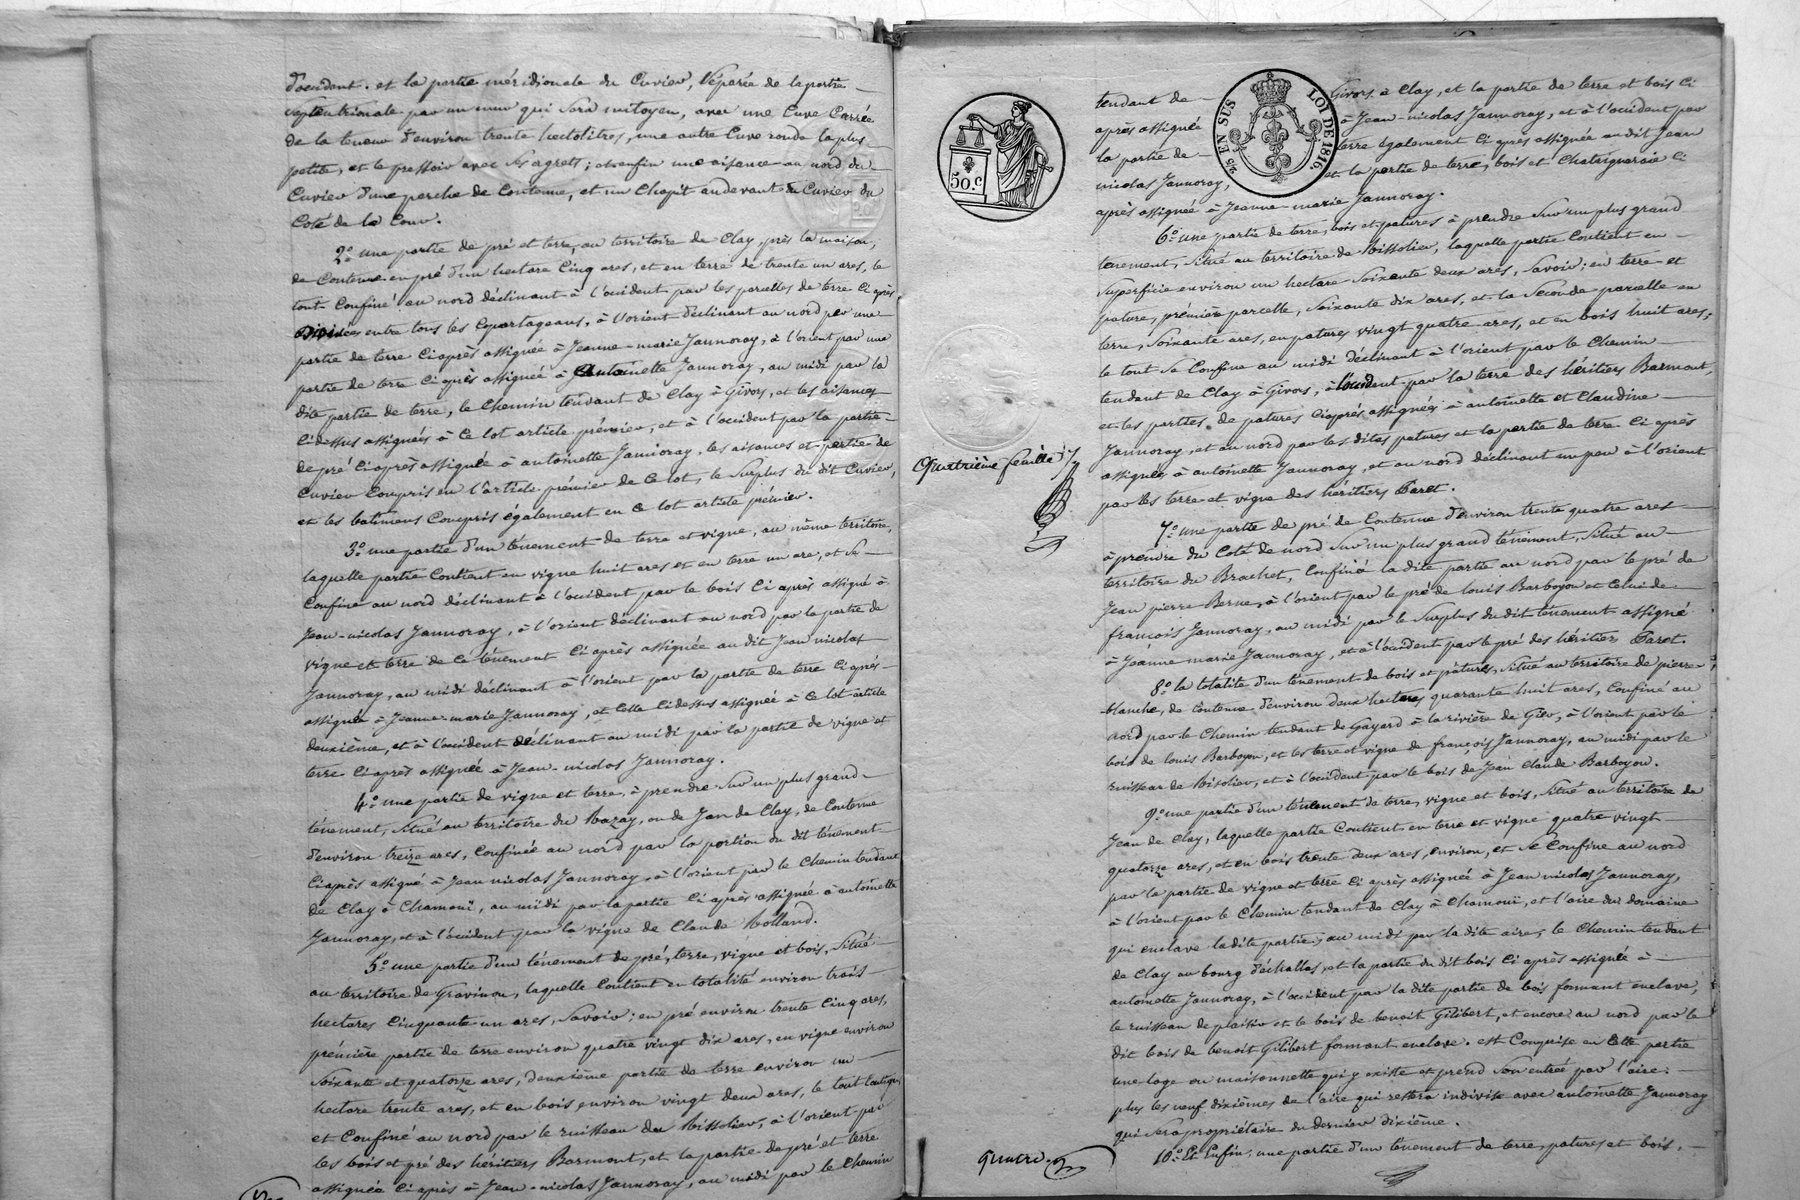 d'occident. et la partie méridionale du Cuvier, séparée de la partie
septentrionale par un mur qui sera mitoyen, avec une Cuve Carrée
de la teneur d'environ trente hectolitres, une autre Cuve ronde la plus
petite, et le pressoir avec ses agrets; et enfin une aisance au nord du
Cuvier d'une perche de Contenue, et un Chapit au devant du Cuvier du
Coté de la Cour.
2.° une partie de pré et terre, au territoire de Clay, près la maison,
de Contenue en pré d'un hectare Cinq ares, et en terre de trente un ares, le
tout Confiné au nord déclinant à l'occident par les parcelles de terre Ci après
Divisées entre tous les Copartageans, à l'orient déclinant au nord par une
partie de terre Ci après assignée à Jeanne-marie Jannoray, à l'orient par une
partie de terre Ci après assignée à Antoinette Jannoray, au midi par la
dite partie de terre, le Chemin tendant de Clay à Givors, et les aisances
Ci dessus assignées à Ce lot article prémier, et à l'occident par la partie
de pré Ci après assignée à antoinette Jannoray, les aisances et partie de
Cuvier Compris en l'article prémier de Ce lot, le Surplus du dit Cuvier,
et les batimens Compris également en Ce lot article prémier.
3.° une partie d'un ténement de terre et vigne, au même territoire,
laquelle partie Contient en vigne huit ares et en terre un are, et se
Confine au nord déclinant à l'occident par le bois Ci après assigné à
Jean-nicolas Jannoray, à l'orient déclinant au nord par la partie de
vigne et terre de Ce ténement Ci après assignée au dit Jean nicolas
Jannoray, au midi déclinant à l'orient par la partie de terre Ci après
assignée à Jeanne-marie Jannoray, et Celle Ci dessus assignée à Ce lot article
deuxième, et à l'occident déclinant au midi par la partie de vigne et
terre Ci après assignée à Jean-nicolas Jannoray.
4.° une partie de vigne et terre, à prendre sur un plus grand
ténement, Situé au territoire du Mazay, ou de Jan de Clay, de Contenue
d'environ treize ares, Confinée au nord par la portion du dit ténement
Ci après assigné à Jean nicolas Jannoray, à l'orient par le Chemin tendant
de Clay à Chamoui, au midi par la partie Ci après assignée à antoinette
Jannoray, et à l'occident par la vigne de Claude Rolland.
5.° une partie d'un ténement de pré, terre, vigne et bois, Situé
au territoire de Gravinon, laquelle Contient en totalité environ trois
hectares Cinquante un ares, Savoir; en pré environ trente Cinq ares,
prémière partie de terre environ quatre vingt dix ares, en vigne environ
Soixante et quatorze ares, deuxième partie de terre environ un
hectare trente ares, et en bois environ vingt deux ares, le tout Contigu,
et Confiné au nord par le ruisseau du Missolier, à l'orient par
les bois et pré des héritiers Barmont, et la partie de pré et terre
assignée Ci après à Jean-nicolas Jannoray, au midi par le Chemin
50.c
25 EN SUS LOI DE 1816.
tendant de Givors à Clay, et la partie de terre et bois Ci
après assignée à Jean-nicolas Jannoray, et à l'occident par
la partie de terre également Ci après assignée au dit Jean
nicolas Jannoray, et la partie de terre, bois et Chataigneraie Ci
après assignée à Jeanne-marie Jannoray.
6.° une partie de terre, bois et patures à prendre sur un plus grand
tenement, Situé au territoire de Missolier, laquelle partie Contient en
superficie environ un hectare Soixante deux ares, Savoir; en terre et
pature, prémière parcelle, Soixante dix ares, et la Seconde parcelle en
terre, Soixante ares, en patures vingt quatre ares, et en bois huit ares;
le tout Se Confine au midi déclinant à l'orient par le Chemin
tendant de Clay à Givors, à l'occident par la terre des héritiers Barmont,
et les parties de patures Ci après assignées à antoinette et Claudine
Jannoray, et au nord par les dites patures et la partie de terre Ci après
assignée à antoinette Jannoray, et au nord déclinant un peu à l'orient
par les terre et vigne des héritiers Paret.
Quatrième feuille
7.° une partie de pré de Contenue d'environ trente quatre ares
à prendre du Coté de nord Sur un plus grand ténement, Situé au
territoire du Brachet, Confiné la dite partie au nord par le pré de
Jean pierre Berne, à l'orient par le pré de louis Barboyon et Celui de
françois Jannoray, au midi par le Surplus du dit ténement assigné
à Jeanne marie Jannoray, et à l'occident par le pré des héritiers Paret.
8.° la totalité d'un ténement de bois et pâtures, Situé au territoire de pierre
-blanche, de Contenue d'environ deux hectares quarante huit ares, Confiné au
nord par le Chemin tendant de Gayard à la rivière de Gier, à l'orient par le
bois de louis Barboyon, et les terre et vigne de françois Jannoray, au midi par le
ruisseau de Missolier, et à l'occident par le bois de Jean Claude Barboyon.
9.° une partie d'un ténement de terre, vigne et bois, Situé au territoire de
Jean de Clay, laquelle partie Contient en terre et vigne quatre vingt
quatorze ares, et en bois trente deux ares, environ, et Se Confine au nord
par la partie de vigne et terre Ci après assignée à Jean nicolas Jannoray,
à l'orient par le Chemin tendant de Clay à Chamoui, et l'aire du domaine
qui enclave la dite partie, au midi par la dite aire, le Chemin tendant
de Clay au bourg d'échallas, et la partie du dit bois Ci après assignée à
antoinette Jannoray, à l'occident par la dite partie de bois formant enclave,
le ruisseau de plaisir et le bois de benoit Gilibert, et encore au nord par le
dit bois de benoit Gilibert formant enclave. est Comprise en Cette partie
une loge ou maisonnette qui y existe et prend Son entrée par l'aire;
plus les neuf dixièmes de l'aire qui restera indivise avec antoinette Jannoray
qui sera propriétaire du dernier dixième.
10.° Et Enfin, une partie d'un ténement de terre, patures et bois.